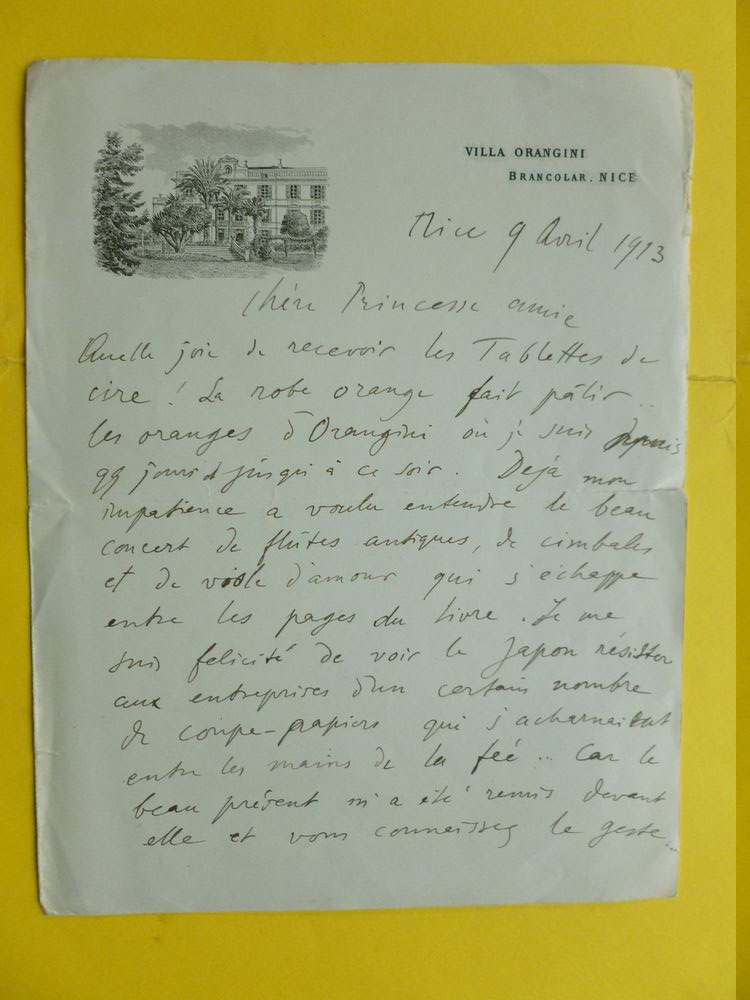 VILLA ORANGINI
BRANCOLAR. NICE
Nice 9 Avril 1913
Chère Princesse amie
Quelle joie de recevoir les Tablettes de
cire ! La robe orange fait pâlir ..
les oranges d'Orangini où je suis depuis
99 jours à ce soir. Déjà mon
impatience a voulu entendre le beau
concert de flûtes antiques, de cimbales
et de viole d'amour qui s'échappe
entre les pages du livre. Je me
suis felicité de voir le Japon résister
aux entreprises d'un certain nombre
de coupe-papiers qui s'acharnaient
entre les mains de la fée .. Car le
beau présent m'a été remis devant
elle et vous connaissez le geste...